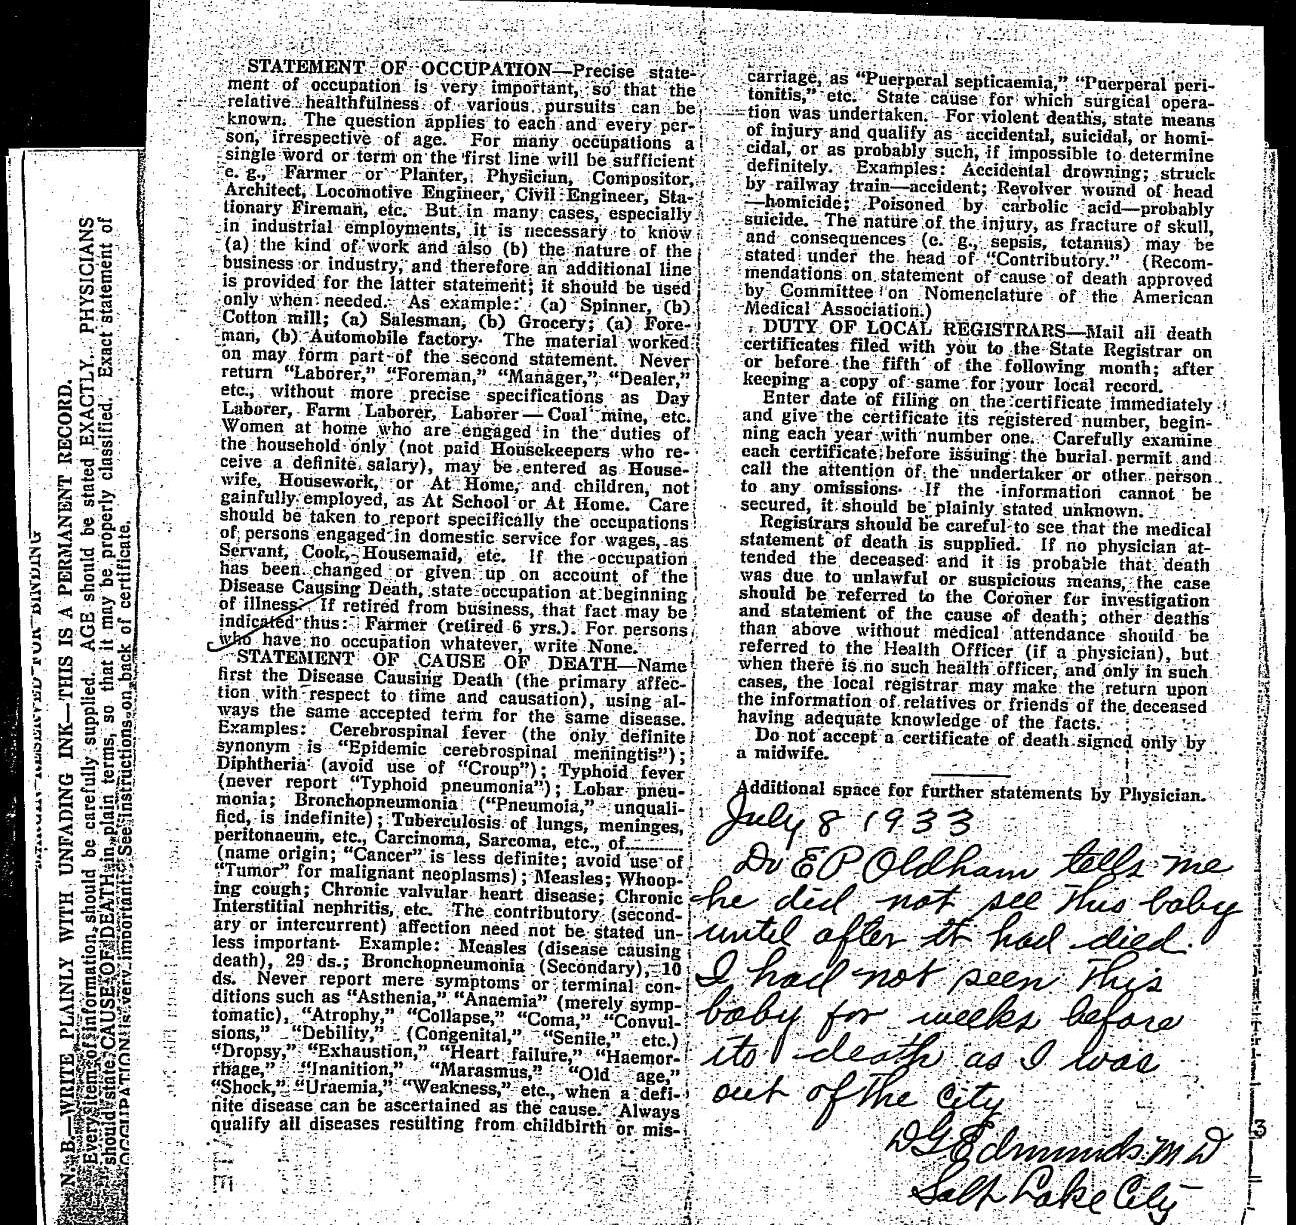 STATEMENT OF OCCUPATION—Precise state-
ment of occupation is very important, so that the
relative healthfulness of various pursuits can be
known. The question applies to each and every per-
son, irrespective of age. For many occupations a
single word or term on the first line will be sufficient
e. g., Farmer or Planter, Physician, Compositor,
Architect, Locomotive Engineer, Civil Engineer, Sta-
tionary Fireman, etc. But in many cases, especially
in industrial employments, it is necessary to know
(a) the kind of work and also (b) the nature of the
business or industry, and therefore an additional line
is provided for the latter statement; it should be used
only when needed. As example: (a) Spinner, (b)
Cotton mill; (a) Salesman, (b) Grocery; (a) Fore-
man, (b) Automobile factory. The material worked
on may form part of the second statement. Never
return “Laborer,” “Foreman,” “Manager,” “Dealer,”
etc., without more precise specifications as Day
Laborer, Farm Laborer, Laborer—Coal mine, etc.
Women at home who are engaged in the duties of
the household only (not paid Housekeepers who re-
ceive a definite salary), may be entered as House-
wife, Housework, or At Home, and children, not
gainfully employed, as At School or At Home. Care
should be taken to report specifically the occupations
of persons engaged in domestic service for wages, as
Servant, Cook, Housemaid, etc. If the occupation
has been changed or given up on account of the
Disease Causing Death, state occupation at beginning
of illness. If retired from business, that fact may be
indicated thus: Farmer (retired 6 yrs.). For persons
who have no occupation whatever, write None.
STATEMENT OF CAUSE OF DEATH—Name
first the Disease Causing Death (the primary affec-
tion with respect to time and causation), using al-
ways the same accepted term for the same disease.
Examples: Cerebrospinal fever (the only definite
synonym is “Epidemic cerebrospinal meningtis”);
Diphtheria (avoid use of “Croup”); Typhoid fever
(never report “Typhoid pneumonia”); Lobar pneu-
monia; Bronchopneumonia (“Pneumoia,” unquali-
fied, is indefinite); Tuberculosis of lungs, meninges,
peritonaeum, etc., Carcinoma, Sarcoma, etc., of
(name origin; “Cancer” is less definite; avoid use of
“Tumor” for malignant neoplasms); Measles; Whoop-
ing cough; Chronic valvular heart disease; Chronic
Interstitial nephritis, etc. The contributory (second-
ary or intercurrent) affection need not be stated un-
less important. Example: Measles (disease causing
death), 29 ds.; Bronchopneumonia (Secondary), 10
ds. Never report mere symptoms or terminal con-
ditions such as “Asthenia,” “Anaemia” (merely symp-
tomatic), “Atrophy,” “Collapse,” “Coma,” “Convul-
sions,” “Debility,” (Congenital,” “Senile,” etc.)
“Dropsy,” “Exhaustion,” “Heart failure,” “Haemor-
rhage,” “Inanition,” “Marasmus,” “Old age,”
“Shock,” “Uraemia,” “Weakness,” etc., when a defi-
nite disease can be ascertained as the cause. Always
qualify all diseases resulting from childbirth or mis-
carriage, as “Puerperal septicaemia,” “Puerperal peri-
tonitis,” etc. State cause for which surgical opera-
tion was undertaken. For violent deaths, state means
of injury and qualify as accidental, suicidal, or homi-
cidal, or as probably such, if impossible to determine
definitely. Examples: Accidental drowning; struck
by railway train—accident; Revolver wound of head
—homicide; Poisoned by carbolic acid—probably
suicide. The nature of the injury, as fracture of skull,
and consequences (e. g., sepsis, tetanus) may be
stated under the head of “Contributory.” (Recom-
mendations on statement of cause of death approved
by Committee on Nomenclature of the American
Medical Association.)
DUTY OF LOCAL REGISTRARS—Mail all death
certificates filed with you to the State Registrar on
or before the fifth of the following month; after
keeping a copy of same for your local record.
Enter date of filing on the certificate immediately
and give the certificate its registered number, begin-
ning each year with number one. Carefully examine
each certificate before issuing the burial permit and
call the attention of the undertaker or other person
to any omissions. If the information cannot be
secured, it should be plainly stated unknown.
Registrars should be careful to see that the medical
statement of death is supplied. If no physician at-
tended the deceased and it is probable that death
was due to unlawful or suspicious means, the case
should be referred to the Coroner for investigation
and statement of the cause of death; other deaths
than above without medical attendance should be
referred to the Health Officer (if a physician), but
when there is no such health officer, and only in such
cases, the local registrar may make the return upon
the information of relatives or friends of the deceased
having adequate knowledge of the facts.
Do not accept a certificate of death signed only by
a midwife.
Additional space for further statements by Physician.
July 8 1933
Dr E P Oldham tells me
he did not see this baby
until after it had died.
I had not seen this
baby for weeks before
its death as I was
out of the city
D G Edmunds M D
Salt Lake City
3
MARGIN RESERVED FOR BINDING
N. B.—WRITE PLAINLY WITH UNFADING INK—THIS IS A PERMANENT RECORD.
Every item of information should be carefully supplied. AGE should be stated EXACTLY. PHYSICIANS
should state CAUSE OF DEATH in plain terms, so that it may be properly classified. Exact statement of
OCCUPATION is very important. See instructions on back of certificate.